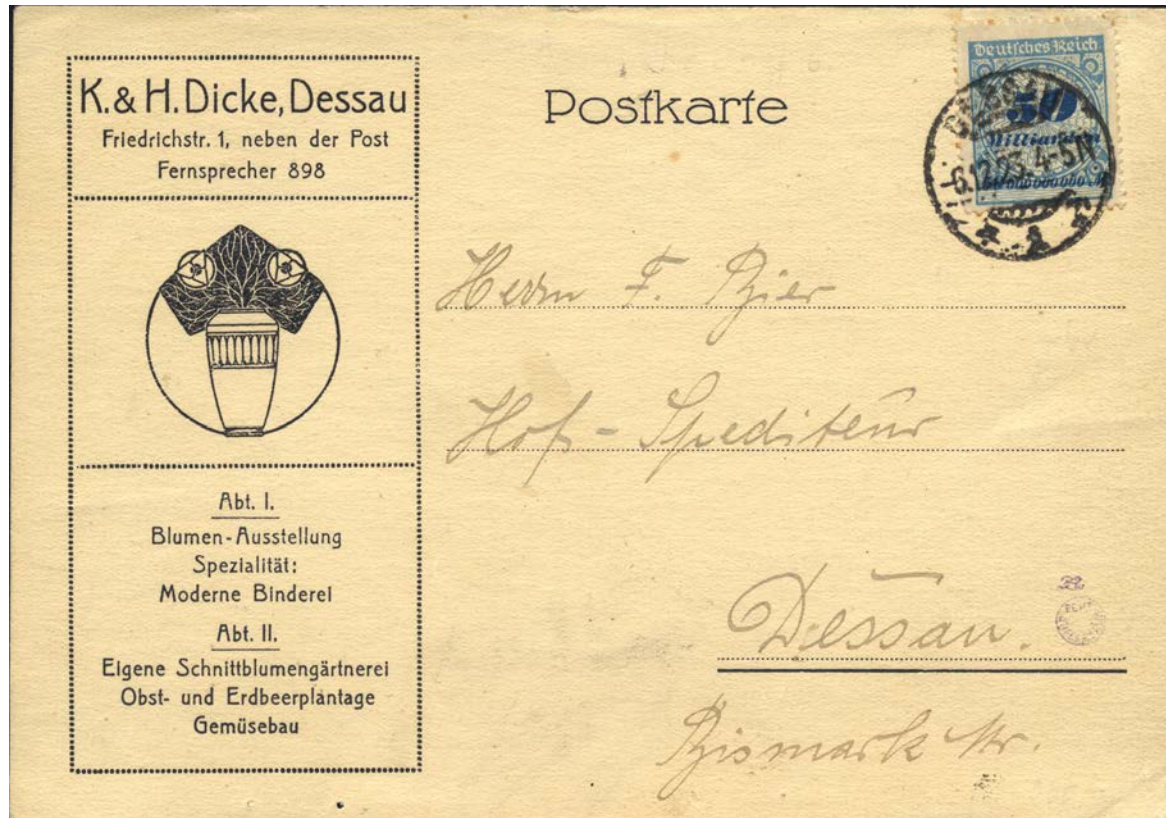 K. & H. Dicke, Dessau
Friedrichstr. 1, neben der Post
Fernsprecher 898
Abt. I.
Blumen-Ausstellung
Spezialität:
Moderne Binderei
Abt. II.
Eigene Schnittblumengärtnerei
Obst- und Erdbeerplantage
Gemüsebau
Postkarte
Deutsches Reich
50
Milliarden
DESSAU
6.12.23. 4-5N
Herrn F. Bier
Hof-Spediteur
Dessau.
Bismark str.